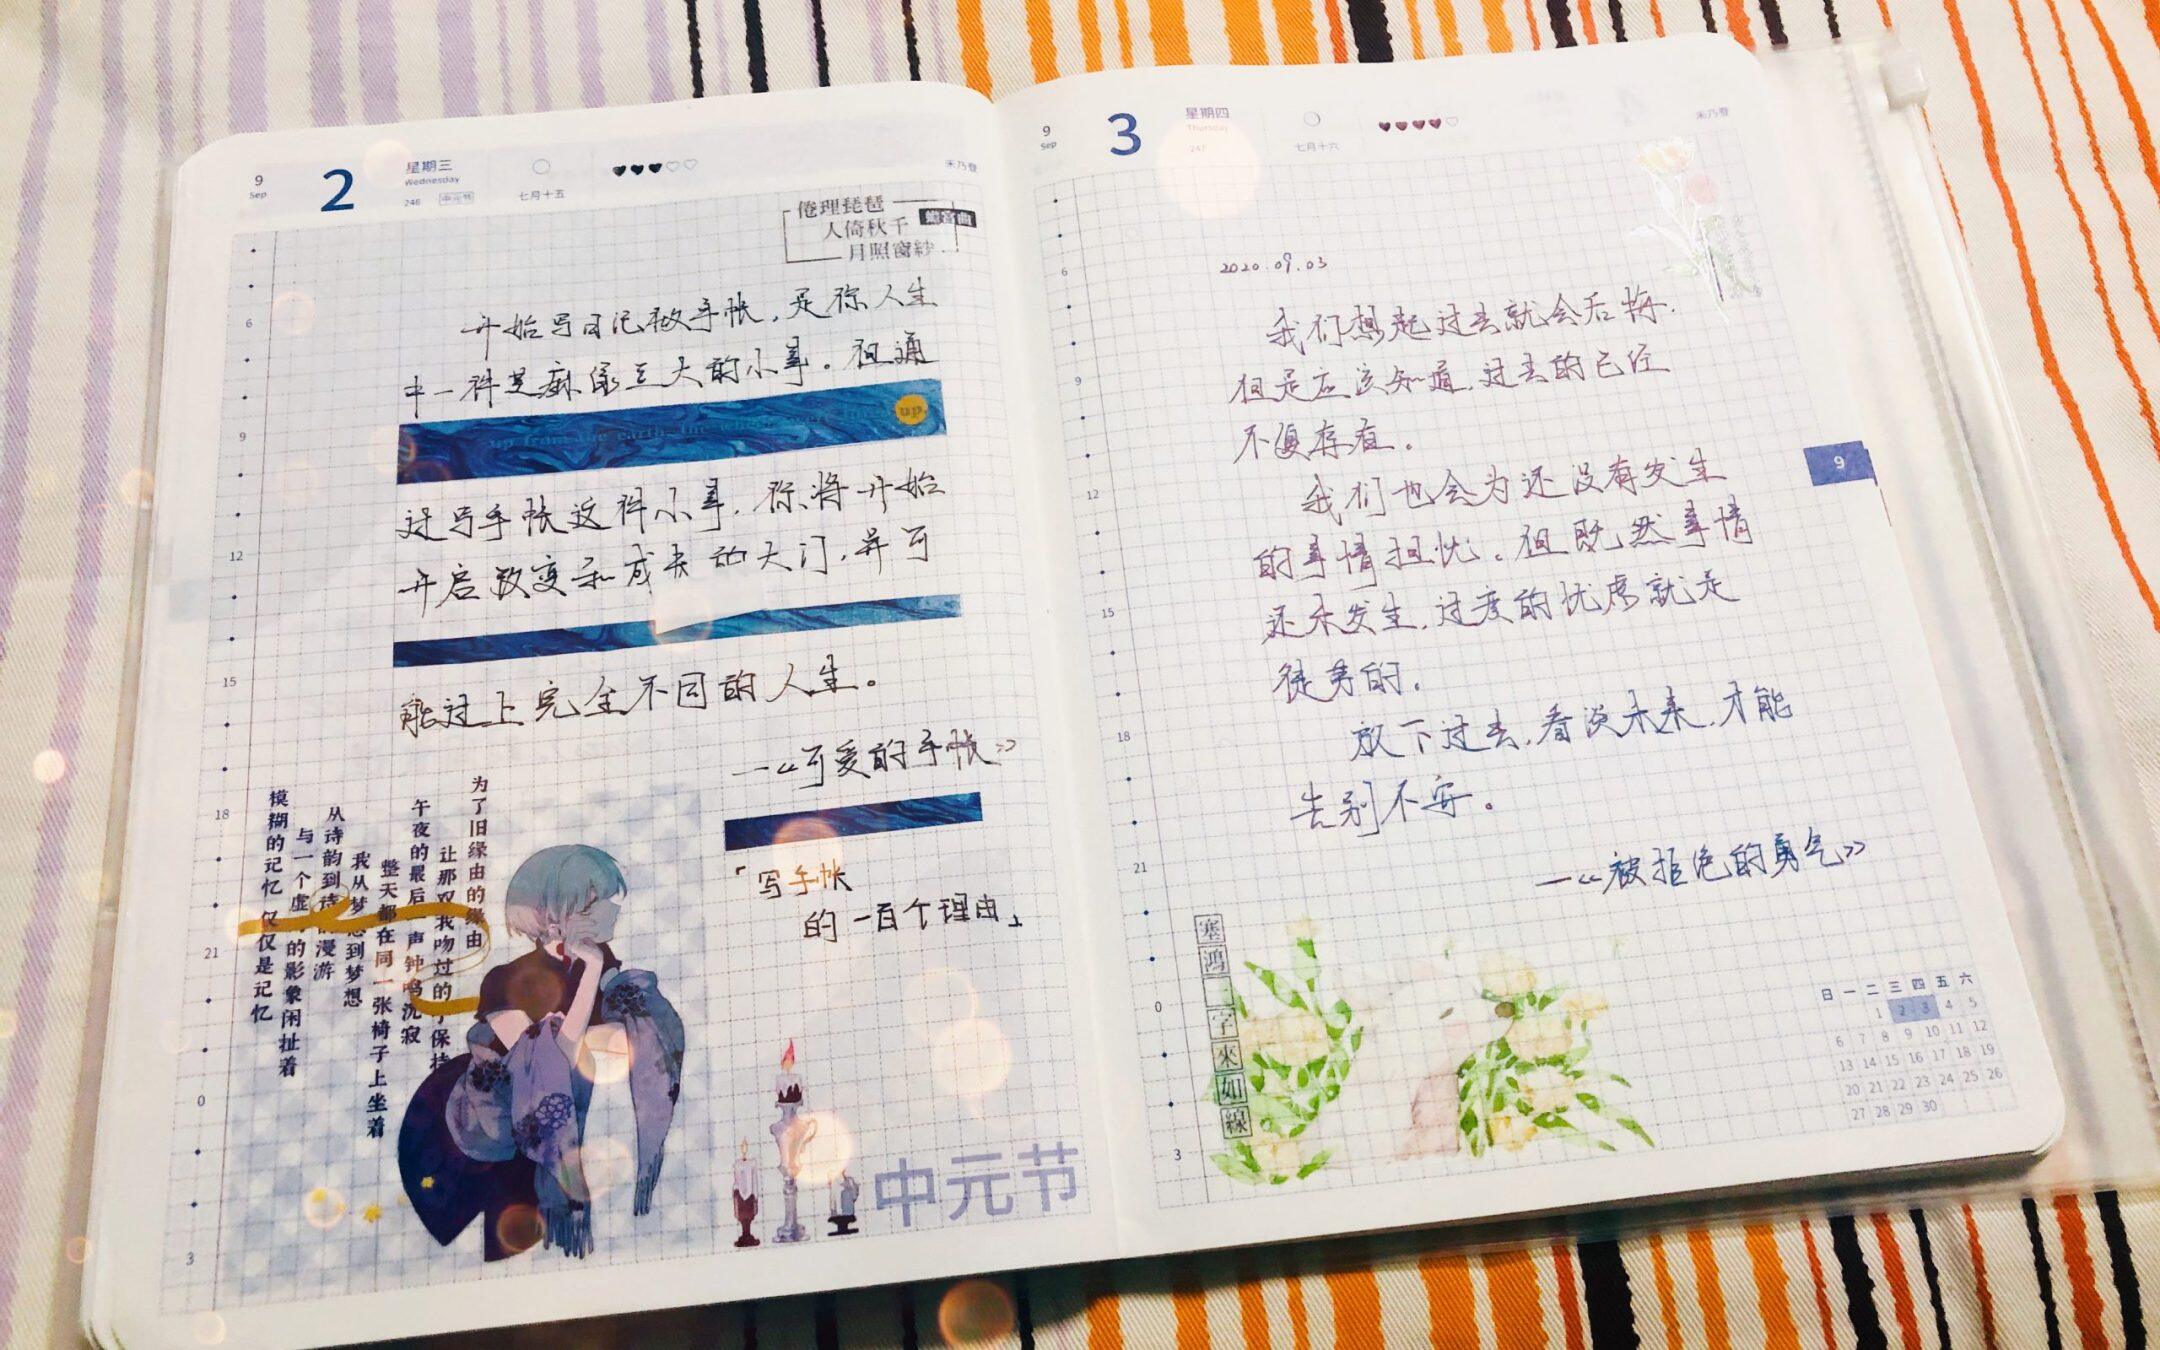 9
Sep
2
星期三
Wednesday
246 中元节
七月十五
禾乃登
倦理琵琶
人倚秋千
月照窗紗
开始写日记做手帐，是你人生
中一件芝麻绿豆大的小事。但通
up from the earth, the wheel
up.
过写手帐这件小事，你将开始
开启改变和成长的大门，并可
能过上完全不同的人生。
—《可爱的手帐》
「写手帐
的一百个理由」
为了旧缘由的缘由
让那双我吻过的
保持
午夜的最后一声钟鸣沉寂
整天都在同一张椅子上坐着
我从梦想到梦想
从诗韵到诗的漫游
与一个虚的影象闲扯着
模糊的记忆 仅仅是记忆
中元节
6
9
12
15
18
21
0
3
9
Sep
3
星期四
Thursday
247
七月十六
禾乃登
2020.09.03
我们想起过去就会后悔.
但是应该知道,过去的已经
不复存在。
我们也会为还没有发生
的事情担忧。但既然事情
还未发生,过度的忧虑就是
徒劳的.
放下过去,看淡未来,才能
告别不安。
—《被拒绝的勇气》
塞鴻一字來如線
6
9
12
15
18
21
0
3
9
日 一 二 三 四 五 六
1 2 3 4 5
6 7 8 9 10 11 12
13 14 15 16 17 18 19
20 21 22 23 24 25 26
27 28 29 30